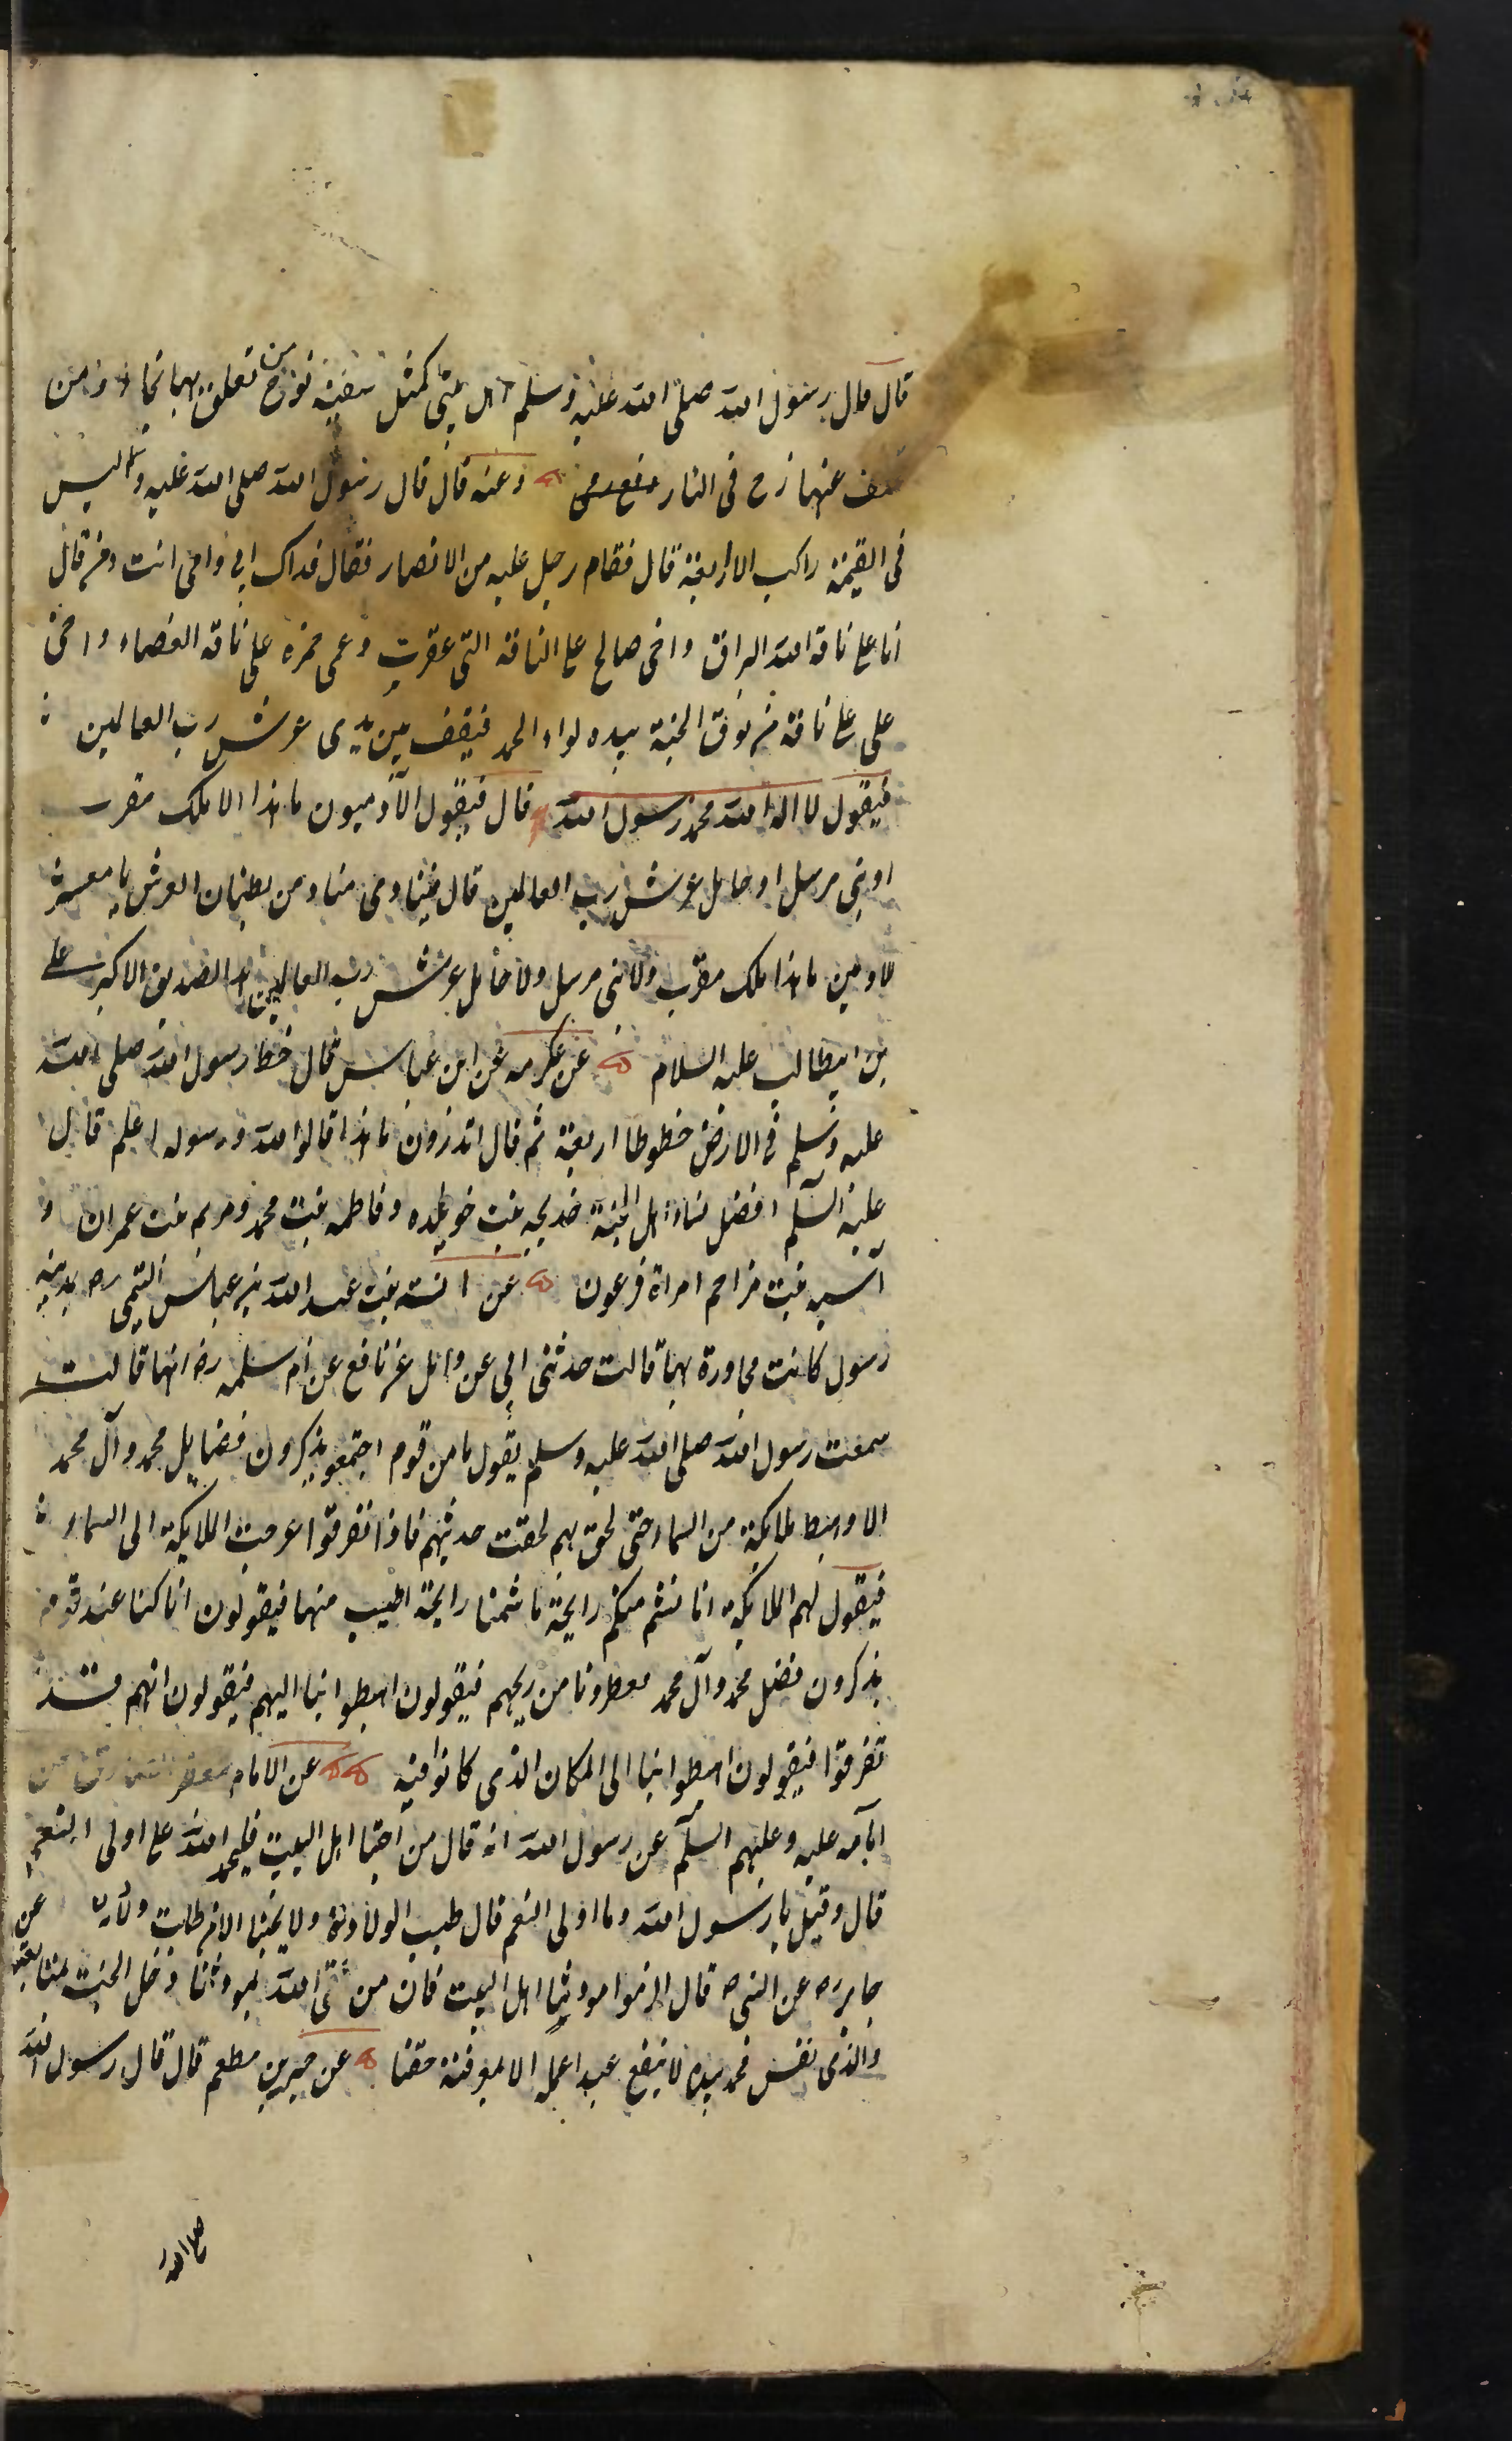 قال قال رسول الله صلى الله عليه وسلم اهل بيتى كمثل سفينة نوح من تعلق بها نجاء و من
تخلف عنها زج فى النار وعنه قال قال رسول الله صلى الله عليه وسلم ليس
فى القيمة راكب الا اربعة قال فقام رجل عليه من الانصار فقال فداك ابى وامى انت ومن قال
انا على ناقة الله البراق واخى صالح على الناقة التى عقرت وعمى حمزه على ناقة العضباء واخى
على على ناقة من نوق الجنة بيده لواء الحمد فيقف بين يدى عرش رب العالمين
فيقول لا اله الا الله محمد رسول الله قال فيقول الآدميون ما هذا الا ملك مقرب
او نبى مرسل او حامل عرش رب العالمين قال فينادى مناد من بطنان العرش يا معشر
الادمين ما هذا ملك مقرب ولا نبى مرسل ولا حامل عرش رب العالمين هذا الصديق الاكبر على
بن ابيطالب عليه السلام عن عكرمه عن ابن عباس قال خط رسول الله صلى الله
عليه وسلم فى الارض خطوطا اربعة ثم قال اتدرون ما هذا قالوا الله ورسوله اعلم قال
عليه السلم افضل نساء اهل الجنة خديجه بنت خويلده وفاطمه بنت محمد ومريم بنت عمران و
آسيه بنت مزاحم امراة فرعون عن انسته بنت عبد الله بن عباس التميمى بمدينه
رسول كانت مجاورة بها قالت حدثنى ابى عن وائل عن نافع عن ام سلمه رضه انها قالت
سمعت رسول الله صلى الله عليه وسلم يقول ما من قوم اجتمعو يذكرون فضايل محمد وآل محمد
الا وهبط ملايكة من السماء حتى لحق بهم لحقت حديثهم فاذا تفرقوا عرجت الملايكة الى السماء
فيقول لهم الملايكة انا نشم منكم رايحة ما شممنا رايحة اطيب منها فيقولون انا كنا عند قوم
يذكرون فضل محمد وآل محمد فعطرونا من ريحهم فيقولون اهبطوا بنا اليهم فيقولون انهم قد
تفرقوا فيقولون اهبطوا بنا الى المكان الذى كانوا فيه عن الامام جعفر الصادق عن
آبآئه عليه وعليهم السلم عن رسول الله انه قال من احبنا اهل البيت فليحمد الله على اولى النعم
قال وقيل يا رسول الله وما اولى النعم قال طيب الولادة ولا يحبنا الا من طابت ولادته عن
جابر رضه عن النبى ص قال الزموا مودتنا اهل البيت فان من لقى الله بمودتنا دخل الجنة بشفاعتنا
والذى نفس محمد بيده لا ينفع عبدا عمله الا بمعرفة حقنا عن جبير بن مطعم قال قال رسول الله
صلى الله